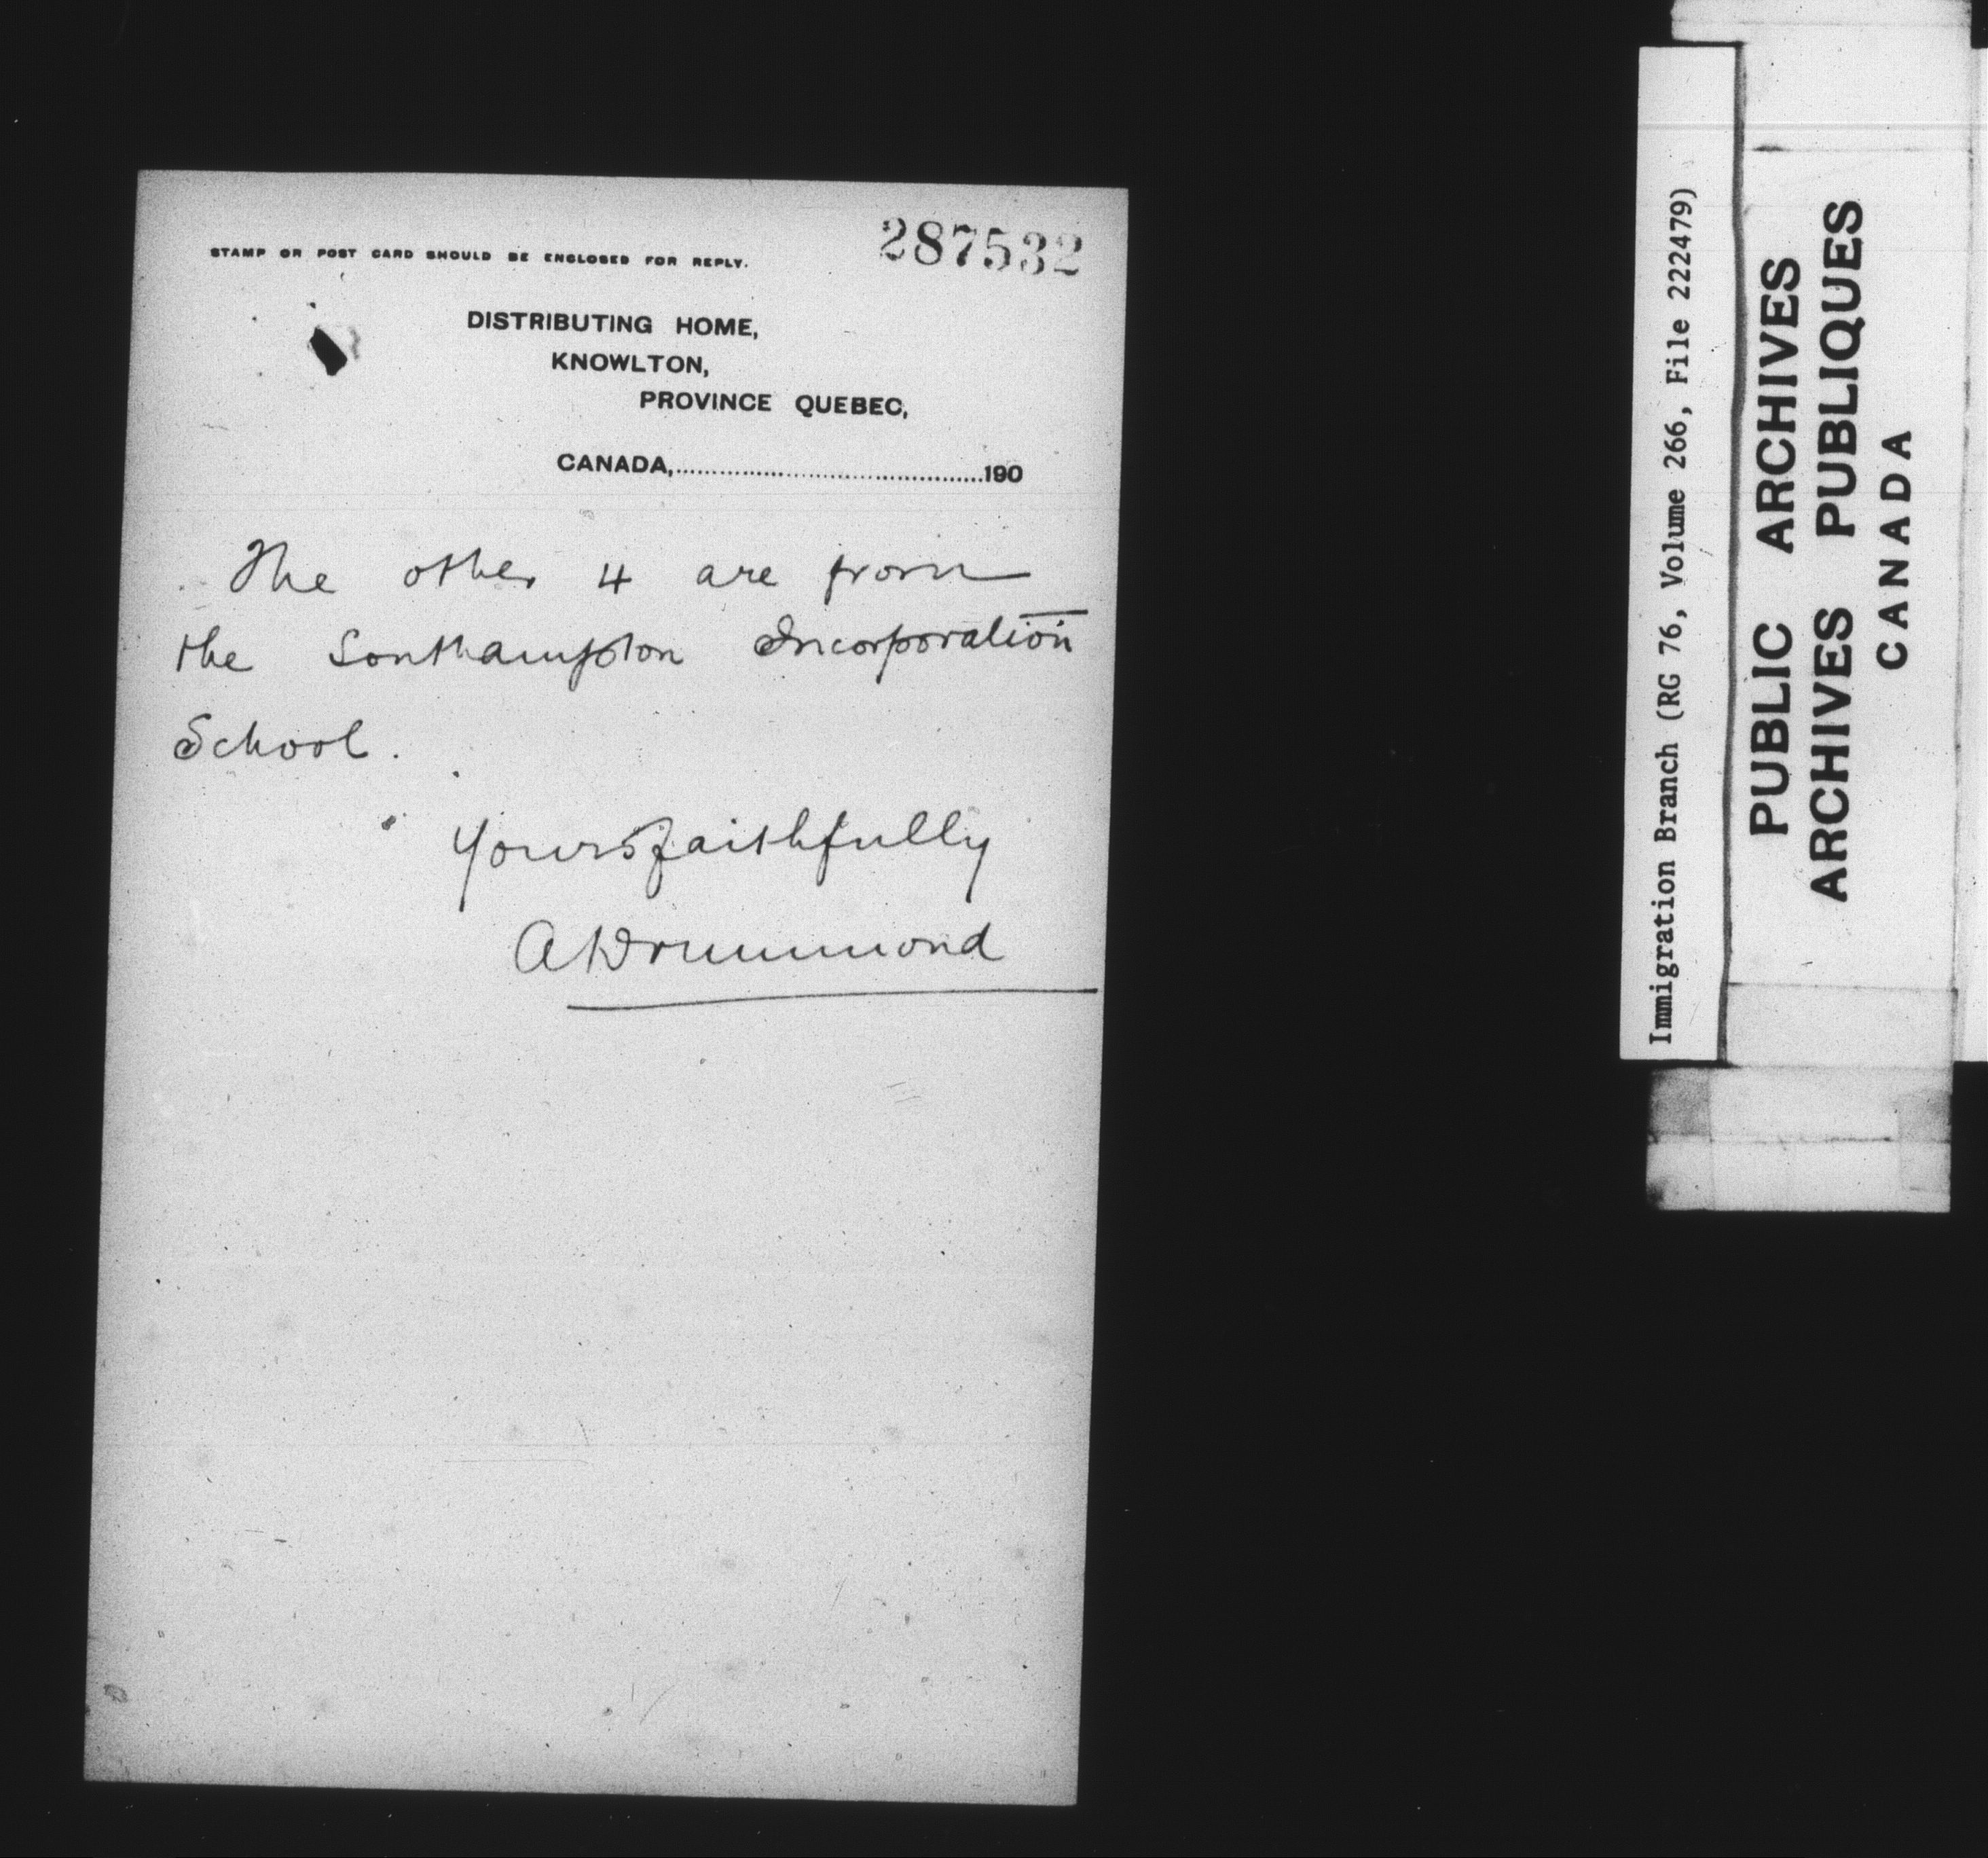 STAMP OR POST CARD SHOULD BE ENCLOSED FOR REPLY.
287532
DISTRIBUTING HOME,
KNOWLTON,
PROVINCE QUEBEC,
CANADA,..........................................190
The other 4 are from
the Southampton Incorporation
School.
Yours faithfully
A Drummond
Immigration Branch (RG 76, Volume 266, File 222479)
PUBLIC ARCHIVES
ARCHIVES PUBLIQUES
CANADA